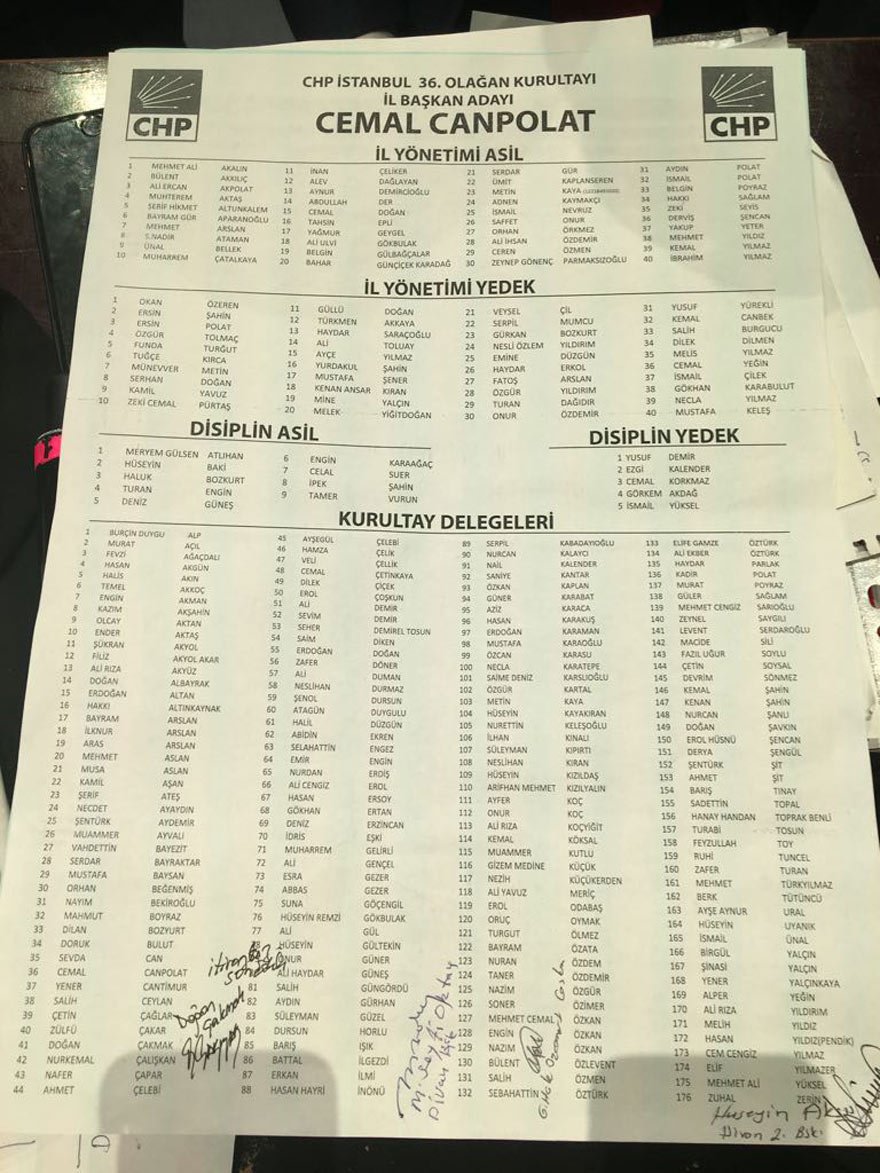 CHP
CHP
CHP İSTANBUL 36. OLAĞAN KURULTAYI
İL BAŞKAN ADAYI
CEMAL CANPOLAT
İL YÖNETİMİ ASİL
1 MEHMET ALİ AKALIN
2 BÜLENT AKKILIÇ
3 ALİ ERCAN AKPOLAT
4 MUHTEREM AKTAŞ
5 ŞERİF HİKMET ALTUNKALEM
6 BAYRAM GÜR APARANOĞLU
7 MEHMET ARSLAN
8 S.NADİR ATAMAN
9 ÜNAL BELLEK
10 MUHARREM ÇATALKAYA
11 İNAN ÇELİKER
12 ALEV DAĞLAYAN
13 AYNUR DEMİRCİOĞLU
14 ABDULLAH DER
15 CEMAL DOĞAN
16 TAHSİN EPLİ
17 YAĞMUR GEYGEL
18 ALİ ULVİ GÖKBULAK
19 BELGİN GÜLBAĞÇALAR
20 BAHAR GÜNÇİÇEK KARADAĞ
21 SERDAR GÜR
22 ÜMİT KAPLANSEREN
23 METİN KAYA
24 ADNEN KAYMAKÇI
25 İSMAİL NEVRUZ
26 SAFFET ONUR
27 ORHAN ÖRKMEZ
28 ALİ İHSAN ÖZDEMİR
29 CEREN ÖZMEN
30 ZEYNEP GÖNENÇ PARMAKSIZOĞLU
31 AYDIN POLAT
32 İSMAİL POLAT
33 BELGİN POYRAZ
34 HAKKI SAĞLAM
35 ZEKİ SEYİS
36 DERVİŞ ŞENCAN
37 YAKUP YETER
38 MEHMET YILDIZ
39 KEMAL YILMAZ
40 İBRAHİM YILMAZ
İL YÖNETİMİ YEDEK
1 OKAN ÖZEREN
2 ERSİN ŞAHİN
3 ERSİN POLAT
4 ÖZGÜR TOLMAÇ
5 FUNDA TURĞUT
6 TUĞÇE KIRCA
7 MÜNEVVER METİN
8 SERHAN DOĞAN
9 KAMİL YAVUZ
10 ZEKİ CEMAL PÜRTAŞ
11 GÜLLÜ DOĞAN
12 TÜRKMEN AKKAYA
13 HAYDAR SARAÇOĞLU
14 ALİ TOLUAY
15 AYÇE YILMAZ
16 YURDAKUL ŞAHİN
17 MUSTAFA ŞENER
18 KENAN ANSAR KIRAN
19 MİNE YALÇIN
20 MELEK YİĞİTDOĞAN
21 VEYSEL ÇİL
22 SERPİL MUMCU
23 GÜRKAN BOZKURT
24 NESLİ ÖZLEM YILDIRIM
25 EMİNE DÜZGÜN
26 HAYDAR ERKOL
27 FATOŞ ARSLAN
28 ÖZGÜR YILDIRIM
29 TURAN DAĞIDIR
30 ONUR ÖZDEMİR
31 YUSUF YÜREKLİ
32 KEMAL CANBEK
33 SALİH BURGUCU
34 DİLEK DİLMEN
35 MELİS YILMAZ
36 CEMAL YEĞİN
37 İSMAİL ÇİLEK
38 GÖKHAN KARABULUT
39 NECLA YILMAZ
40 MUSTAFA KELEŞ
DİSİPLİN ASİL
1 MERYEM GÜLSEN ATLIHAN
2 HÜSEYİN BAKİ
3 HALUK BOZKURT
4 TURAN ENGİN
5 DENİZ GÜNEŞ
6 ENGİN KARAAĞAÇ
7 CELAL SUER
8 İPEK ŞAHİN
9 TAMER VURUN
DİSİPLİN YEDEK
1 YUSUF DEMİR
2 EZGİ KALENDER
3 CEMAL KORKMAZ
4 GÖRKEM AKDAĞ
5 İSMAİL YÜKSEL
KURULTAY DELEGELERİ
1 BURÇİN DUYGU ALP
2 MURAT AÇIL
3 FEVZİ AĞAÇDALI
4 HASAN AKGÜN
5 HALİS AKIN
6 TEMEL AKKOÇ
7 ENGİN AKMAN
8 KAZIM AKŞAHİN
9 OLCAY AKTAN
10 ENDER AKTAŞ
11 ŞÜKRAN AKYOL
12 FİLİZ AKYOL AKAR
13 ALİ RIZA AKYÜZ
14 DOĞAN ALBAYRAK
15 ERDOĞAN ALTAN
16 HAKKI ALTINKAYNAK
17 BAYRAM ARSLAN
18 İLKNUR ARSLAN
19 ARAS ARSLAN
20 MEHMET ASLAN
21 MUSA ASLAN
22 KAMİL AŞAN
23 ŞERİF ATEŞ
24 NECDET AYAYDIN
25 ŞENTÜRK AYDEMİR
26 MUAMMER AYVALI
27 VAHDETTİN BAYEZİT
28 SERDAR BAYRAKTAR
29 MUSTAFA BAYSAN
30 ORHAN BEĞENMİŞ
31 NAYIM BEKİROĞLU
32 MAHMUT BOYRAZ
33 DİLAN BOZYURT
34 DORUK BULUT
35 SEVDA CAN
36 CEMAL CANPOLAT
37 YENER CANTİMUR
38 SALİH CEYLAN
39 ÇETİN ÇAĞLAR
40 ZÜLFÜ ÇAKAR
41 DOĞAN ÇAKMAK
42 NURKEMAL ÇALIŞKAN
43 NAFER ÇAPAR
44 AHMET ÇELEBİ
45 AYŞEGÜL ÇELEBİ
46 HAMZA ÇELİK
47 VELİ ÇELLİK
48 CEMAL ÇETİNKAYA
49 DİLEK ÇİÇEK
50 EROL ÇOŞKUN
51 ALİ DEMİR
52 SEVİM DEMİR
53 SEHER DEMİREL TOSUN
54 SAİM DİKEN
55 ERDOĞAN DOĞAN
56 ZAFER DÖNER
57 ALİ DUMAN
58 NESLİHAN DURMAZ
59 ŞENOL DURSUN
60 ATAGÜN DUYGULU
61 HALİL DÜZGÜN
62 ABİDİN EKREN
63 SELAHATTİN ENGEZ
64 EMİR ENGİN
65 NURDAN ERDİŞ
66 ALİ CENGİZ EROL
67 HASAN ERSOY
68 GÖKHAN ERTAN
69 DENİZ ERZİNCAN
70 İDRİS EŞKİ
71 MUHARREM GELİRLİ
72 ALİ GENÇEL
73 ESRA GEZER
74 ABBAS GEZER
75 SUNA GÖÇENGİL
76 HÜSEYİN REMZİ GÖKBULAK
77 ALİ GÜL
78 HÜSEYİN GÜLTEKİN
ONUR GÜNER
ALİ HAYDAR GÜNEŞ
81 SALİH GÜNGÖRDÜ
82 AYDIN GÜRHAN
83 SÜLEYMAN GÜZEL
84 DURSUN HORLU
85 BARIŞ IŞIK
86 BATTAL ILGEZDİ
87 ERKAN İLMİ
88 HASAN HAYRİ İNÖNÜ
89 SERPİL KABADAYIOĞLU
90 NURCAN KALAYCI
91 NAİL KALENDER
92 SANİYE KANTAR
93 ÖZKAN KAPLAN
94 GÜNER KARABAT
95 AZİZ KARACA
96 HASAN KARAKUŞ
97 ERDOĞAN KARAMAN
98 MUSTAFA KARAOĞLU
99 ÖZCAN KARASU
100 NECLA KARATEPE
101 SAİME DENİZ KARSLIOĞLU
102 ÖZGÜR KARTAL
103 METİN KAYA
104 HÜSEYİN KAYAKIRAN
105 NURETTİN KELEŞOĞLU
106 İLHAN KINALI
107 SÜLEYMAN KIPIRTI
108 NESLİHAN KIRAN
109 HÜSEYİN KIZILDAŞ
110 ARİFHAN MEHMET KIZILYALIN
111 AYFER KOÇ
112 ONUR KOÇ
113 ALİ RIZA KOÇYİĞİT
114 KEMAL KÖKSAL
115 MUAMMER KUTLU
116 GİZEM MEDİNE KÜÇÜK
117 NEZİH KÜÇÜKERDEN
118 ALİ YAVUZ MERİÇ
119 EROL ODABAŞ
120 ORUÇ OYMAK
121 TURGUT ÖLMEZ
122 BAYRAM ÖZATA
123 NURAN ÖZDEM
124 TANER ÖZDEMİR
125 NAZIM ÖZGÜR
126 SONER ÖZİMER
127 MEHMET CEMAL ÖZKAN
128 ENGİN ÖZKAN
129 NAZIM ÖZKAN
130 BÜLENT ÖZLEVENT
131 SALİH ÖZMEN
132 SEBAHATTİN ÖZTÜRK
133 ELİFE GAMZE ÖZTÜRK
134 ALİ EKBER ÖZTÜRK
135 HAYDAR PARLAK
136 KADİR POLAT
137 MURAT POYRAZ
138 GÜLER SAĞLAM
139 MEHMET CENGİZ SARIOĞLU
140 ZEYNEL SAYGILI
141 LEVENT SERDAROĞLU
142 MACİDE SİLİ
143 FAZIL UĞUR SOYLU
144 ÇETİN SOYSAL
145 DEVRİM SÖNMEZ
146 KEMAL ŞAHİN
147 KENAN ŞAHİN
148 NURCAN ŞANLI
149 DOĞAN ŞAVKIN
150 EROL HÜSNÜ ŞENCAN
151 DERYA ŞENGÜL
152 ŞENTÜRK ŞİT
153 AHMET ŞİT
154 BARIŞ TINAY
155 SADETTİN TOPAL
156 HANAY HANDAN TOPRAK BENLİ
157 TURABİ TOSUN
158 FEYZULLAH TOY
159 RUHİ TUNCEL
160 ZAFER TURAN
161 MEHMET TÜRKYILMAZ
162 BERK TÜTÜNCÜ
163 AYŞE AYNUR URAL
164 HÜSEYİN UYANIK
165 İSMAİL ÜNAL
166 BİRGÜL YALÇIN
167 ŞİNASİ YALÇIN
168 YENER YALÇINKAYA
169 ALPER YEĞİN
170 ALİ RIZA YILDIRIM
171 MELİH YILDIZ
172 HASAN YILDIZ(PENDİK)
173 CEM CENGİZ YILMAZ
174 ELİF YILMAZER
175 MEHMET ALİ YÜKSEL
176 ZUHAL ZERİN
Doğan Çakmak
M. Seyfi Oktay
Divan
Hüseyin
Divan 2. Bşk.